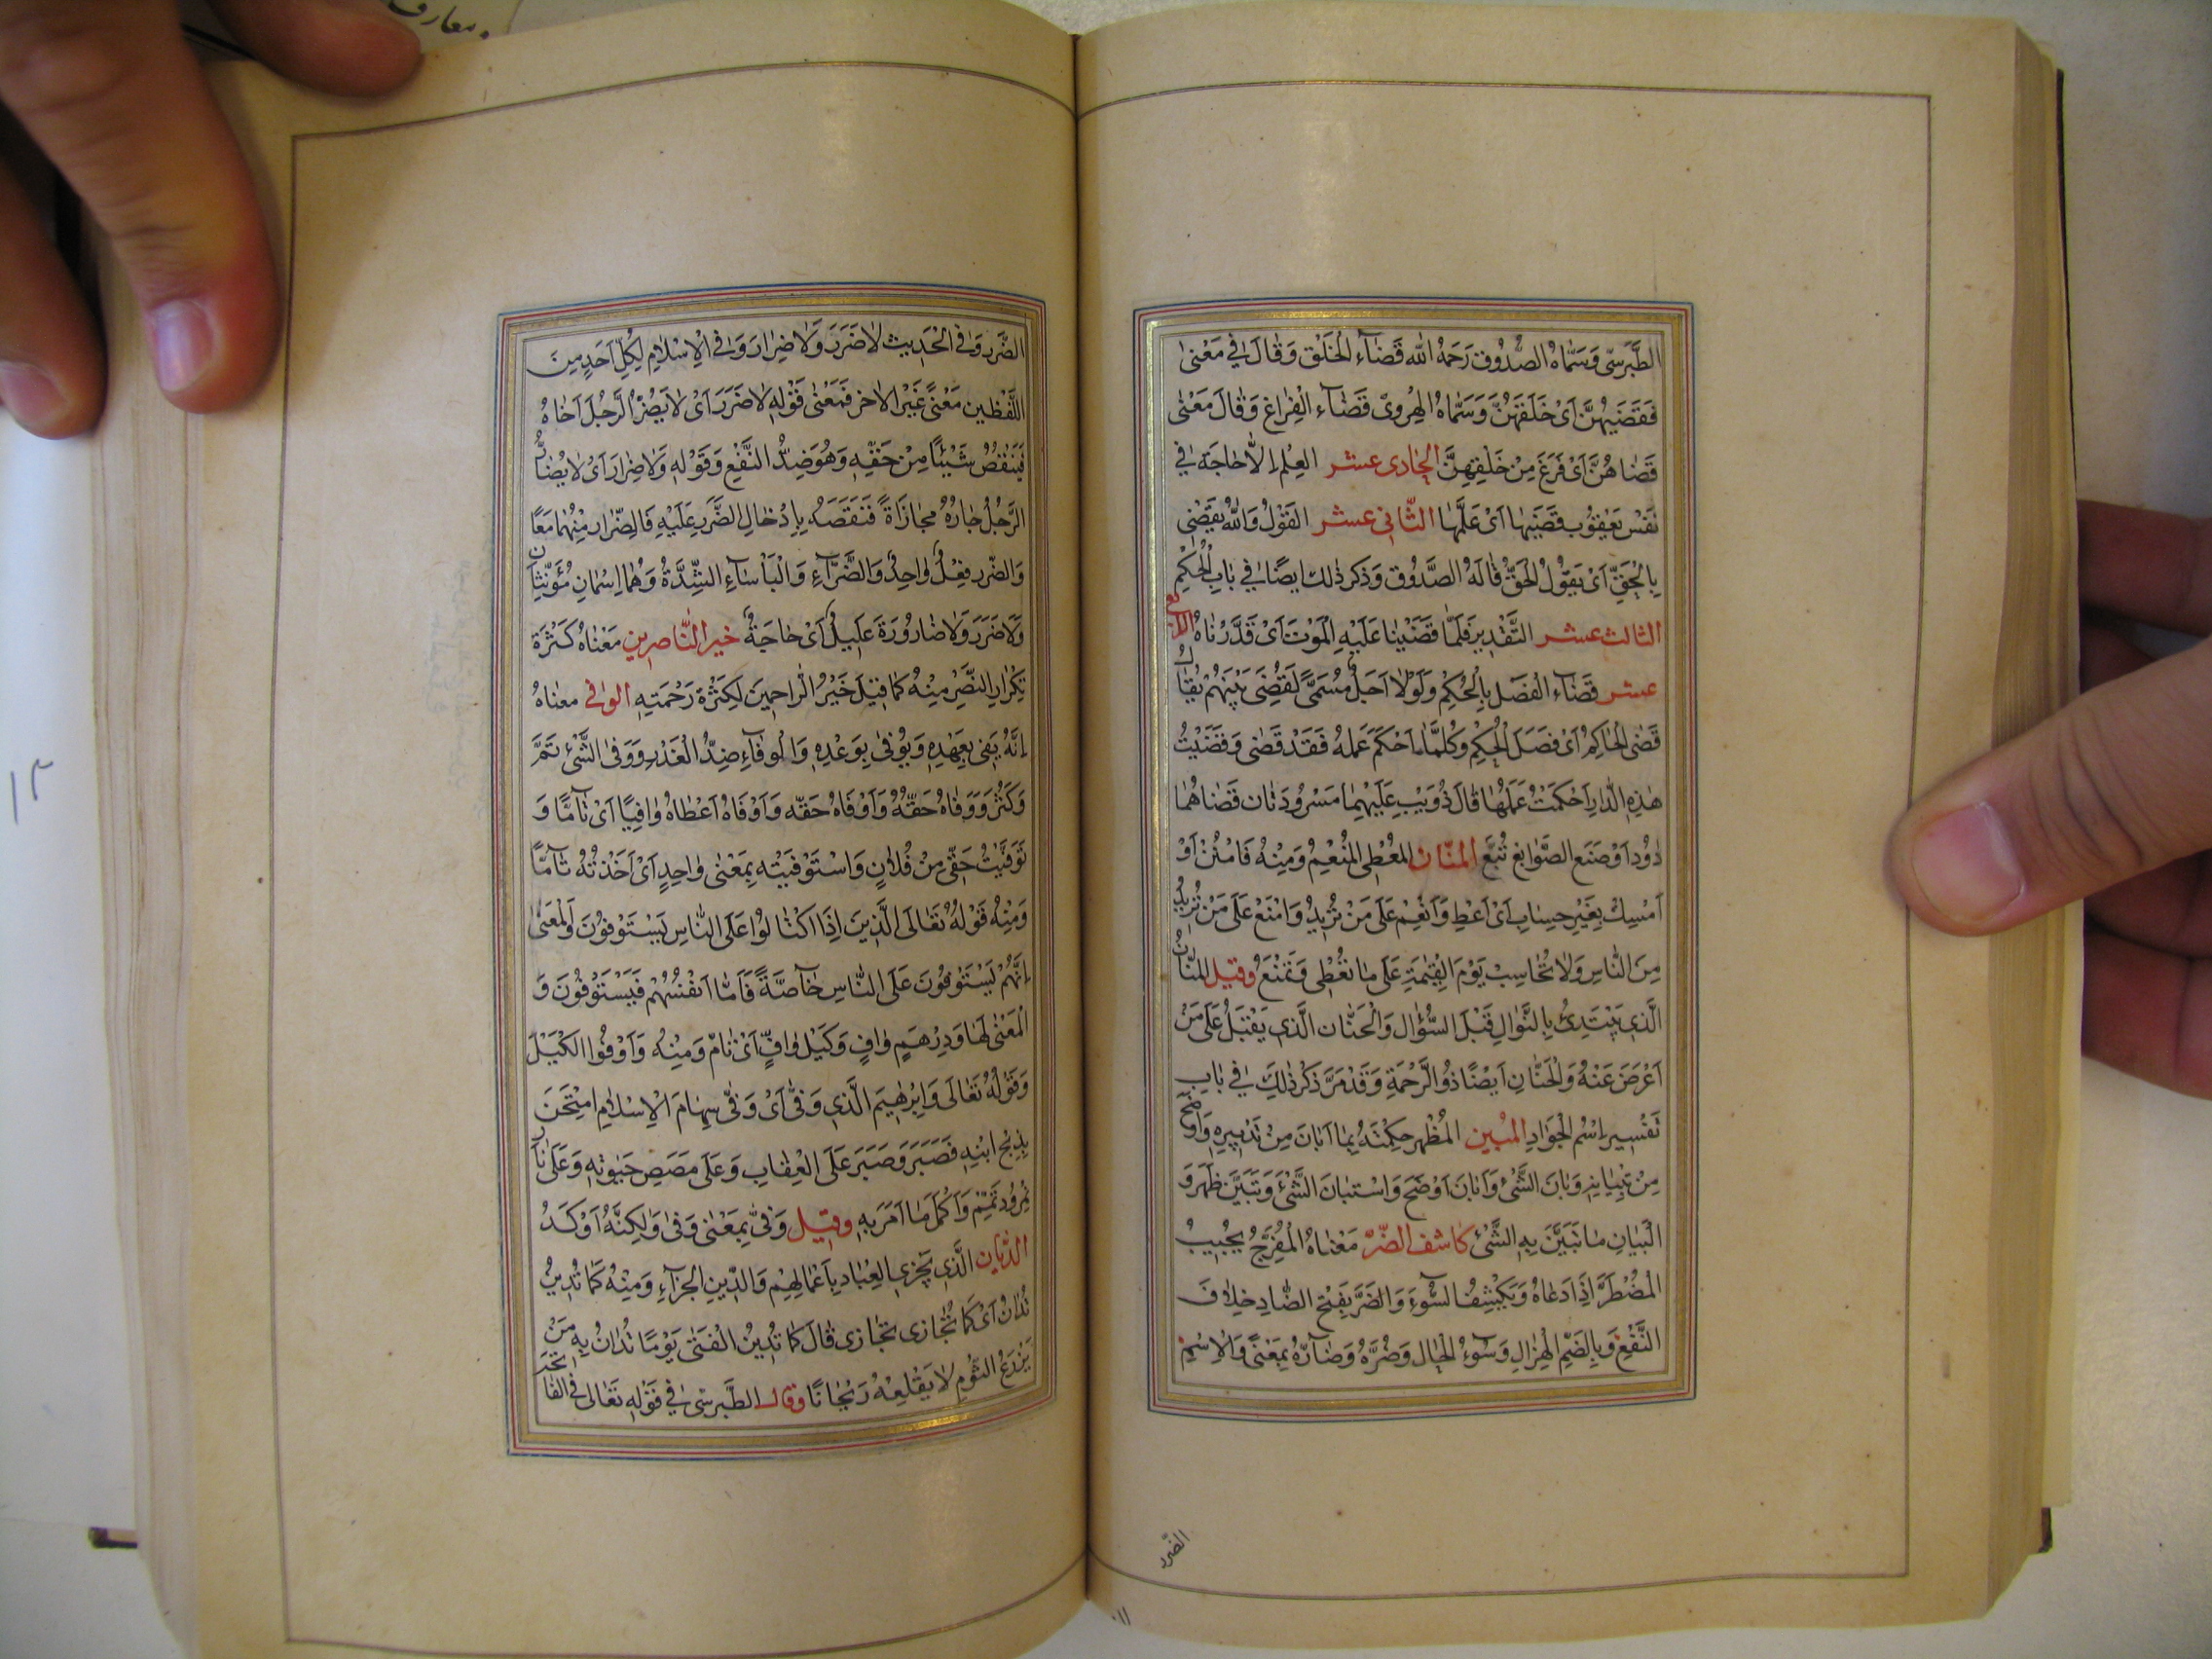 الطَّبَرسيّ وَسَمَّاهُ الصَّدُوق رَحِمَهُ الله قَضَاءَ الخَلْق وَقَالَ في مَعْنى
فَقَضَيهُنَّ اَىْ خَلَقَهُنَّ وَسَمَّاهُ الهِرويّ قَضَاءَ الْفِراغِ وَقَالَ مَعْنى
قَضَاهُنَّ اَىْ فَرَغَ مِنْ خَلْقِهِنَّ الحَادى عشر العِلم اِلّا حَاجَة في
نَفس يَعقُوب قَضَيهَا اَىْ عَلِمَهَا الثّانى عشر القَوْلُ وَاللهُ يَقضى
بِالْحَقِّ اَىْ يَقُولُ الْحَقّ قَالَهُ الصَّدُوق وَذكر ذلك ايضًا في بَابِ الْحُكْمِ
الثالث عشر التَّقْدِير فَلَمَّا قَضَيْنا عَلَيْهِ الْمَوْتَ اَىْ قَدَّرْنَاهُ الرابع
عشر قَضَاءَ الْفَصْل بِالْحُكْمِ وَلَوْلا اَجَلٌ مُسَمًّى لَقُضِىَ بَيْنَهُمْ يُقَالُ
قَضَى الحَاكِمُ اَىْ فَصَلَ الْحُكم وَكُلمَّا اَحْكَمَ عَملهُ فَقَدْ قَضى وَقَضَيْتُ
هٰذِهِ الدّار اَحْكَمْتُ عَمَلَهَا قَالَ ذُؤَيْب عَلَيْهِمَا مَسْرُودَتَان قَضَاهُمَا
دٰوُد اَوْ صَنَع السَّوَابغ تُبَّع المنّان المُعْطِى المُنْعِمُ وَمِنْهُ فَامْنُنْ اَوْ
اَمْسِكْ بِغَيْرِ حِسَابٍ اَىْ اَعْطِ وَاَنْعِمْ عَلَى مَنْ تُرِيدُ وَامْنَعْ عَلَى مَنْ تُرِيدُ
مِنَ النَّاسِ وَلَا تُحَاسِبْ يَوْمَ الْقِيٰمَةِ عَلَى مَا تُعْطِى وَتَمْنَعُ وقيل المَنَّانُ
الَّذى يَبْتَدِئُ بِالنَّوَالِ قَبْلَ السُّؤَال وَالْحَنَّان الَّذى يَقْبَلُ عَلَى مَنْ
اَعْرَضَ عَنْهُ وَالْحَنَّانِ اَيْضًا ذُو الرَّحْمَةِ وَقَدْ مَرَّ ذكْر ذٰلِكَ في بَابِ
تَفْسِير اِسْم الْجَوَاد المُبين المُظهر حِكْمَتَهُ بِمَا اَبَانَ مِنْ تَدْبِيرِهِ وَاَوْضَحَ
مِنْ تِبْيَانِهِ وَبَانَ الشَّىْءُ وَاَبَانَ اَوْضَحَ وَاسْتَبَانَ الشَّىْءُ وَتَبَيَّنَ ظَهَرَ وَ
الْبَيَانِ مَا تَبَيَّنَ بِهِ الشَّىْءُ كاشف الضّرّ مَعْنَاهُ الْمُفَرِّجُ يُجِيبُ
الْمُضْطَرَّ اِذَا دَعَاهُ وَيَكْشِفُ السُّوءَ وَالضَّرّ بِفَتْحِ الضَّادِ خِلَافَ
النَّفْعِ وَبِالضَّمِّ الْهُزَالِ وَسُوءُ الْحَالِ وَضُرَّهُ وَضَارَّهُ بِمَعْنًى وَالْاِسْمُ
الضّرر
الضَّرر وَفى الْحَديث لَا ضَرَرَ وَلَا ضِرَارَ وَفى الْاِسْلَامِ لِكُلِّ اَحَدٍ مِنَ
اللَّفْظَيْن مَعْنًى غَيْرَ الْاٰخر فَمَعْنى قَوْلِهِ لَا ضَرَرَ اَىْ لَا يَضُرُّ الرَّجُلُ اَخَاهُ
فَيَنْقُصُ شَيْئًا مِنْ حَقِّهِ وَهُوَ ضِدُّ النَّفْعِ وَقَوْلِهِ وَلَا ضِرَارَ اَىْ لَا يُضَارُّ
الرَّجُلُ جَارُهُ مُجَازَاةً فَنَقَصَهُ بِاِدْخَالِ الضَّرَرِ عَلَيْهِ فَالضِّرَارُ مِنْهُمَا مَعًا
وَالضّرر فِعْلُ وَاحِدٌ وَالضَّرَّآءِ وَالْبَأْسَآءِ الشِّدَّةُ وَهُمَا اِسْمَانِ مُؤَنَّثَانِ
وَلَا ضَرَرَ وَلَا ضَارُورَةَ عَلَيكَ اَىْ حَاجَةٌ خير النّاصرين مَعْنَاهُ كَثْرَة
تَكْرَارِ النَّصْرِ مِنْهُ كَمَا قِيلَ خَيْرُ الرَّاحِمِينَ لِكَثْرَة رَحْمَتِهِ الوافى معناهُ
اِنَّهُ يَفى بِعَهْدِهِ وَيُوفى بِوَعْدِهِ وَالْوَفَاءِ ضِدُّ الْغَدْرِ وَوَفى الشَّىْءُ تَمَّ
وَكَثُرَ وَوَفَاهُ حَقّهُ وَاَوْفَاهُ حَقّه وَاَوْفَاهُ اَعْطَاهُ وَافِيًا اَىْ تَامًّا وَ
تَوَفَّيْتُ حَقّى مِنْ فُلَانٍ وَاسْتَوْفَيْتُه بِمَعْنى وَاحِدٍ اَىْ اَخَذْتُهُ تَامًّا
وَمِنْهُ قَوْلُهُ تَعَالَى الَّذِينَ اِذَا اكْتَالُوا عَلَى النَّاسِ يَسْتَوْفُونَ وَالْمَعْنى
اِنَّهُمْ يَسْتَوْفُونَ عَلَى النَّاسِ خَاصَّةً فَاَمَّا اَنْفُسُهُمْ فَيَسْتَوْفُونَ وَ
الْمَعْنى لَهَا وَدِرْهَمٍ وَافٍ وَكَيْل وَافٍ اَىْ تَامٌّ وَمِنْهُ وَاَوْفُوا الْكَيْلَ
وَقَوْلُهُ تَعَالَى وَاِبْرٰهِيمَ الَّذى وَفّى اَىْ وَفّى سِهَامَ الْاِسْلَامِ اُمْتُحِنَ
بِذِبْحِ ابْنِهِ فَصَبَرَ وَصَبَرَ عَلَى
نُمْرُود تَمَّمْ وَاَكْمَلَ مَا اُمِرَ بِهِ وقيل وَفّى بِمَعْنى وَفى وَلٰكِنَّهُ اَوْكَدُ
الدّيّان الَّذى يَجْزى الْعِبَاد بِاَعْمَالِهِمْ وَالدّين الْجَزَآءِ وَمِنْهُ كَمَا تُدِينُ
تُدَانُ اَىْ كَمَا تُجَازى تُجَازى قَالَ كَمَا تُدِينُ الْفَتى يَوْمًا تُدَانُ بِهِ مَنْ
يَزْرَعُ الثُّومِ لَا يَقْلَعُهُ رَيْحَانًا وقال الطَّبَرسي في قَوْلِهِ تَعَالى